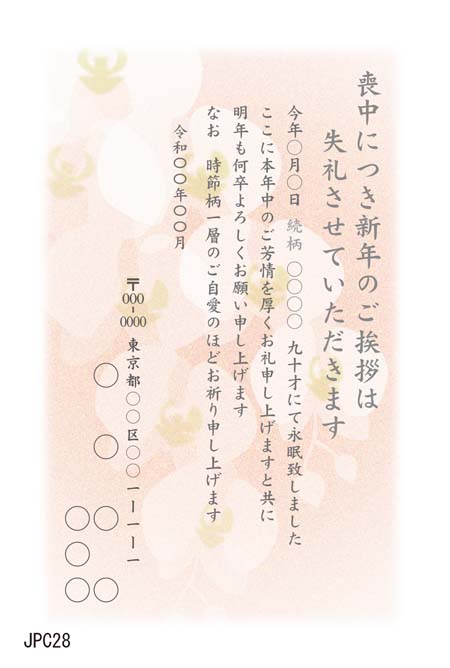 喪中につき新年のご挨拶は
失礼させていただきます
今年〇月〇日 続柄 〇〇〇〇 九十才にて永眠致しました
ここに本年中のご芳情を厚くお礼申し上げますと共に
明年も何卒よろしくお願い申し上げます
なお 時節柄一層のご自愛のほどお祈り申し上げます
令和〇〇年〇〇月
〒000-0000 東京都〇〇区〇〇一ー一ー一
〇 〇 〇〇
〇〇〇
JPC28